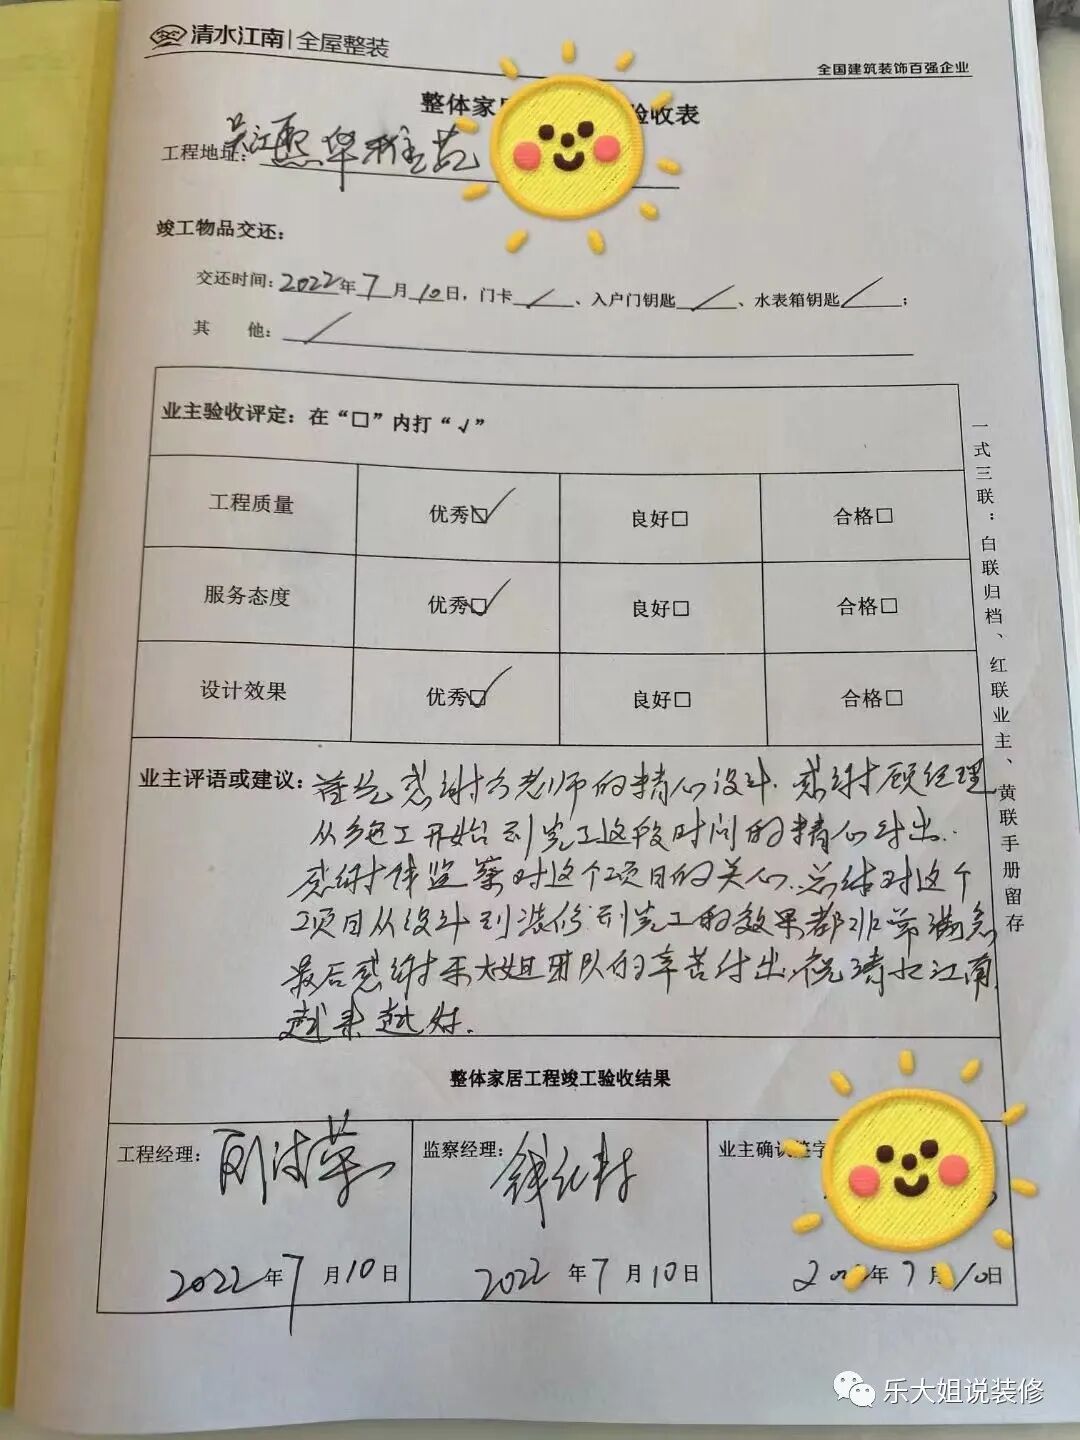 清水江南|全屋整装
全国建筑装饰百强企业
整体家 验收表
工程地址：吴江熙华雅苑
竣工物品交还：
交还时间：2022年7月10日，门卡/、入户门钥匙/、水表箱钥匙/；
其 他：/
业主验收评定：在“□”内打“√”
工程质量 优秀☑ 良好□ 合格□
服务态度 优秀☑ 良好□ 合格□
设计效果 优秀☑ 良好□ 合格□
一式三联：白联归档、红联业主、黄联手册留存
业主评语或建议：首先感谢方老师的精心设计.感谢顾经理
从开工开始到完工这段时间的精心付出.
感谢钱监察对这个项目的关心.总结对这个
项目从设计到装修到完工的效果都非常满意
最后感谢乐大姐团队的辛苦付出.祝清水江南
越来越好.
整体家居工程竣工验收结果
工程经理：
监察经理：
业主确认签字
2022年7月10日
2022年7月10日
年7月10日
乐大姐说装修